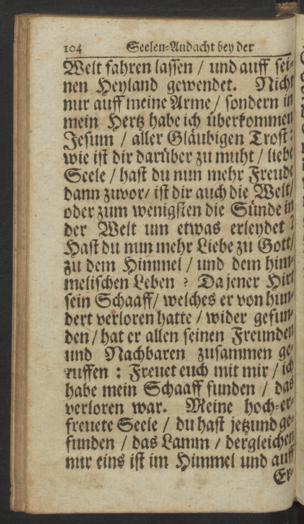 104 Seelen-Andacht bey der
Welt fahren lassen / und auff sei-
nen Heyland gewendet. Nicht
nur auff meine Arme / sondern in
mein Hertz habe ich überkommen
Jesum / aller Gläubigen Trost:
wie ist dir darüber zu muht / liebe
Seele / hast du nun mehr Freude
dann zuvor / ist dir auch die Welt /
oder zum wenigsten die Sünde in
der Welt um etwas erleydet?
Hast du nun mehr Liebe zu Gott /
zu dem Himmel / und dem him-
melischen Leben? Da jener Hirt
sein Schaaff / welches er von hun-
dert verloren hatte / wider gefun-
den / hat er allen seinen Freunden
und Nachbaren zusammen ge-
ruffen: Freuet euch mit mir / ich
habe mein Schaaff funden / das
verloren war. Meine hoch-er-
freuete Seele / du hast jetzund ge-
funden / das Lamm / dergleichen
nur eins ist im Himmel und auff
Er-